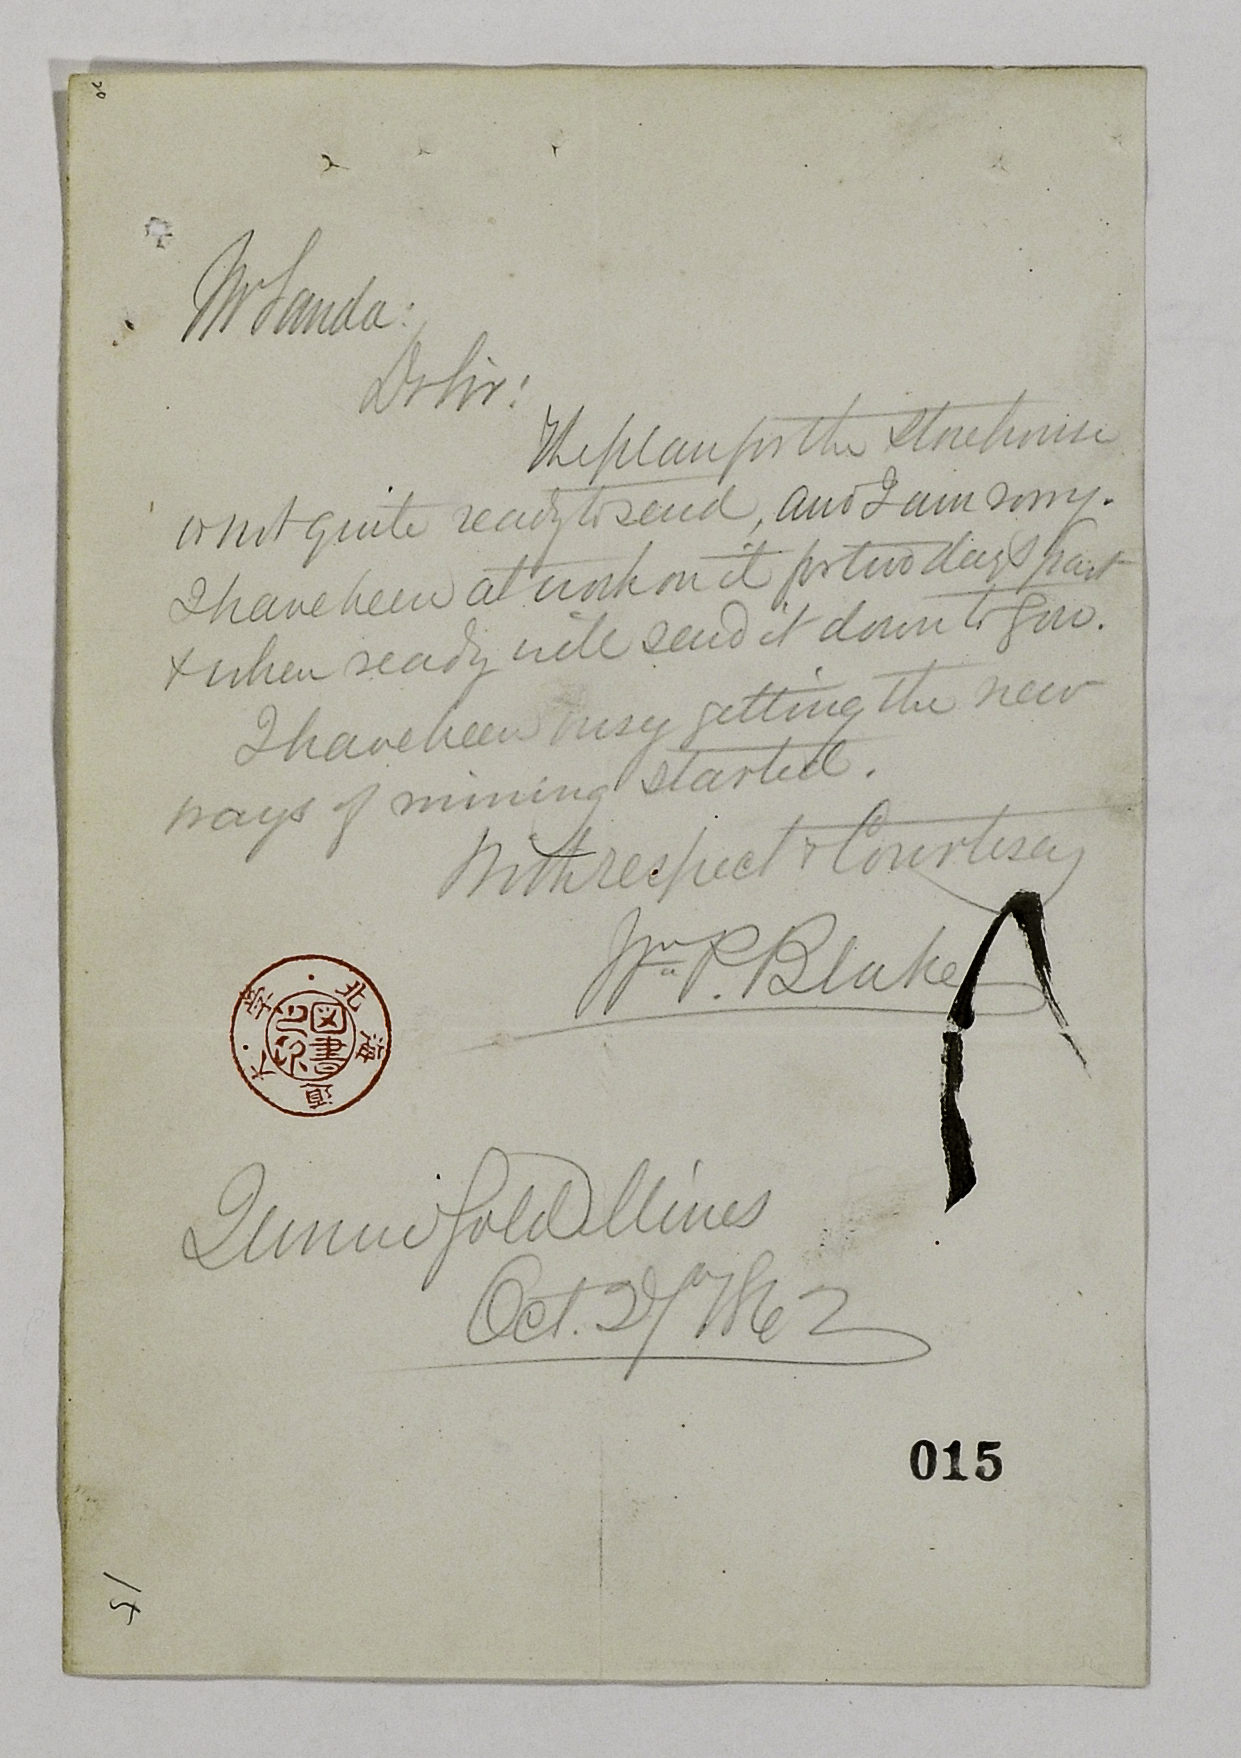 Mr Sanda:
Dr Sir:
The plan for the storehouse
is not quite ready to send, and I am sorry.
I have been at work on it for two days past
& when ready will send it down to you.
I have been busy getting the new
ways of mining started.
With respect & Courtesey
Wm. P. Blake
北海道大学
図書
Gold Mines
Oct. 27th 1862
015
15